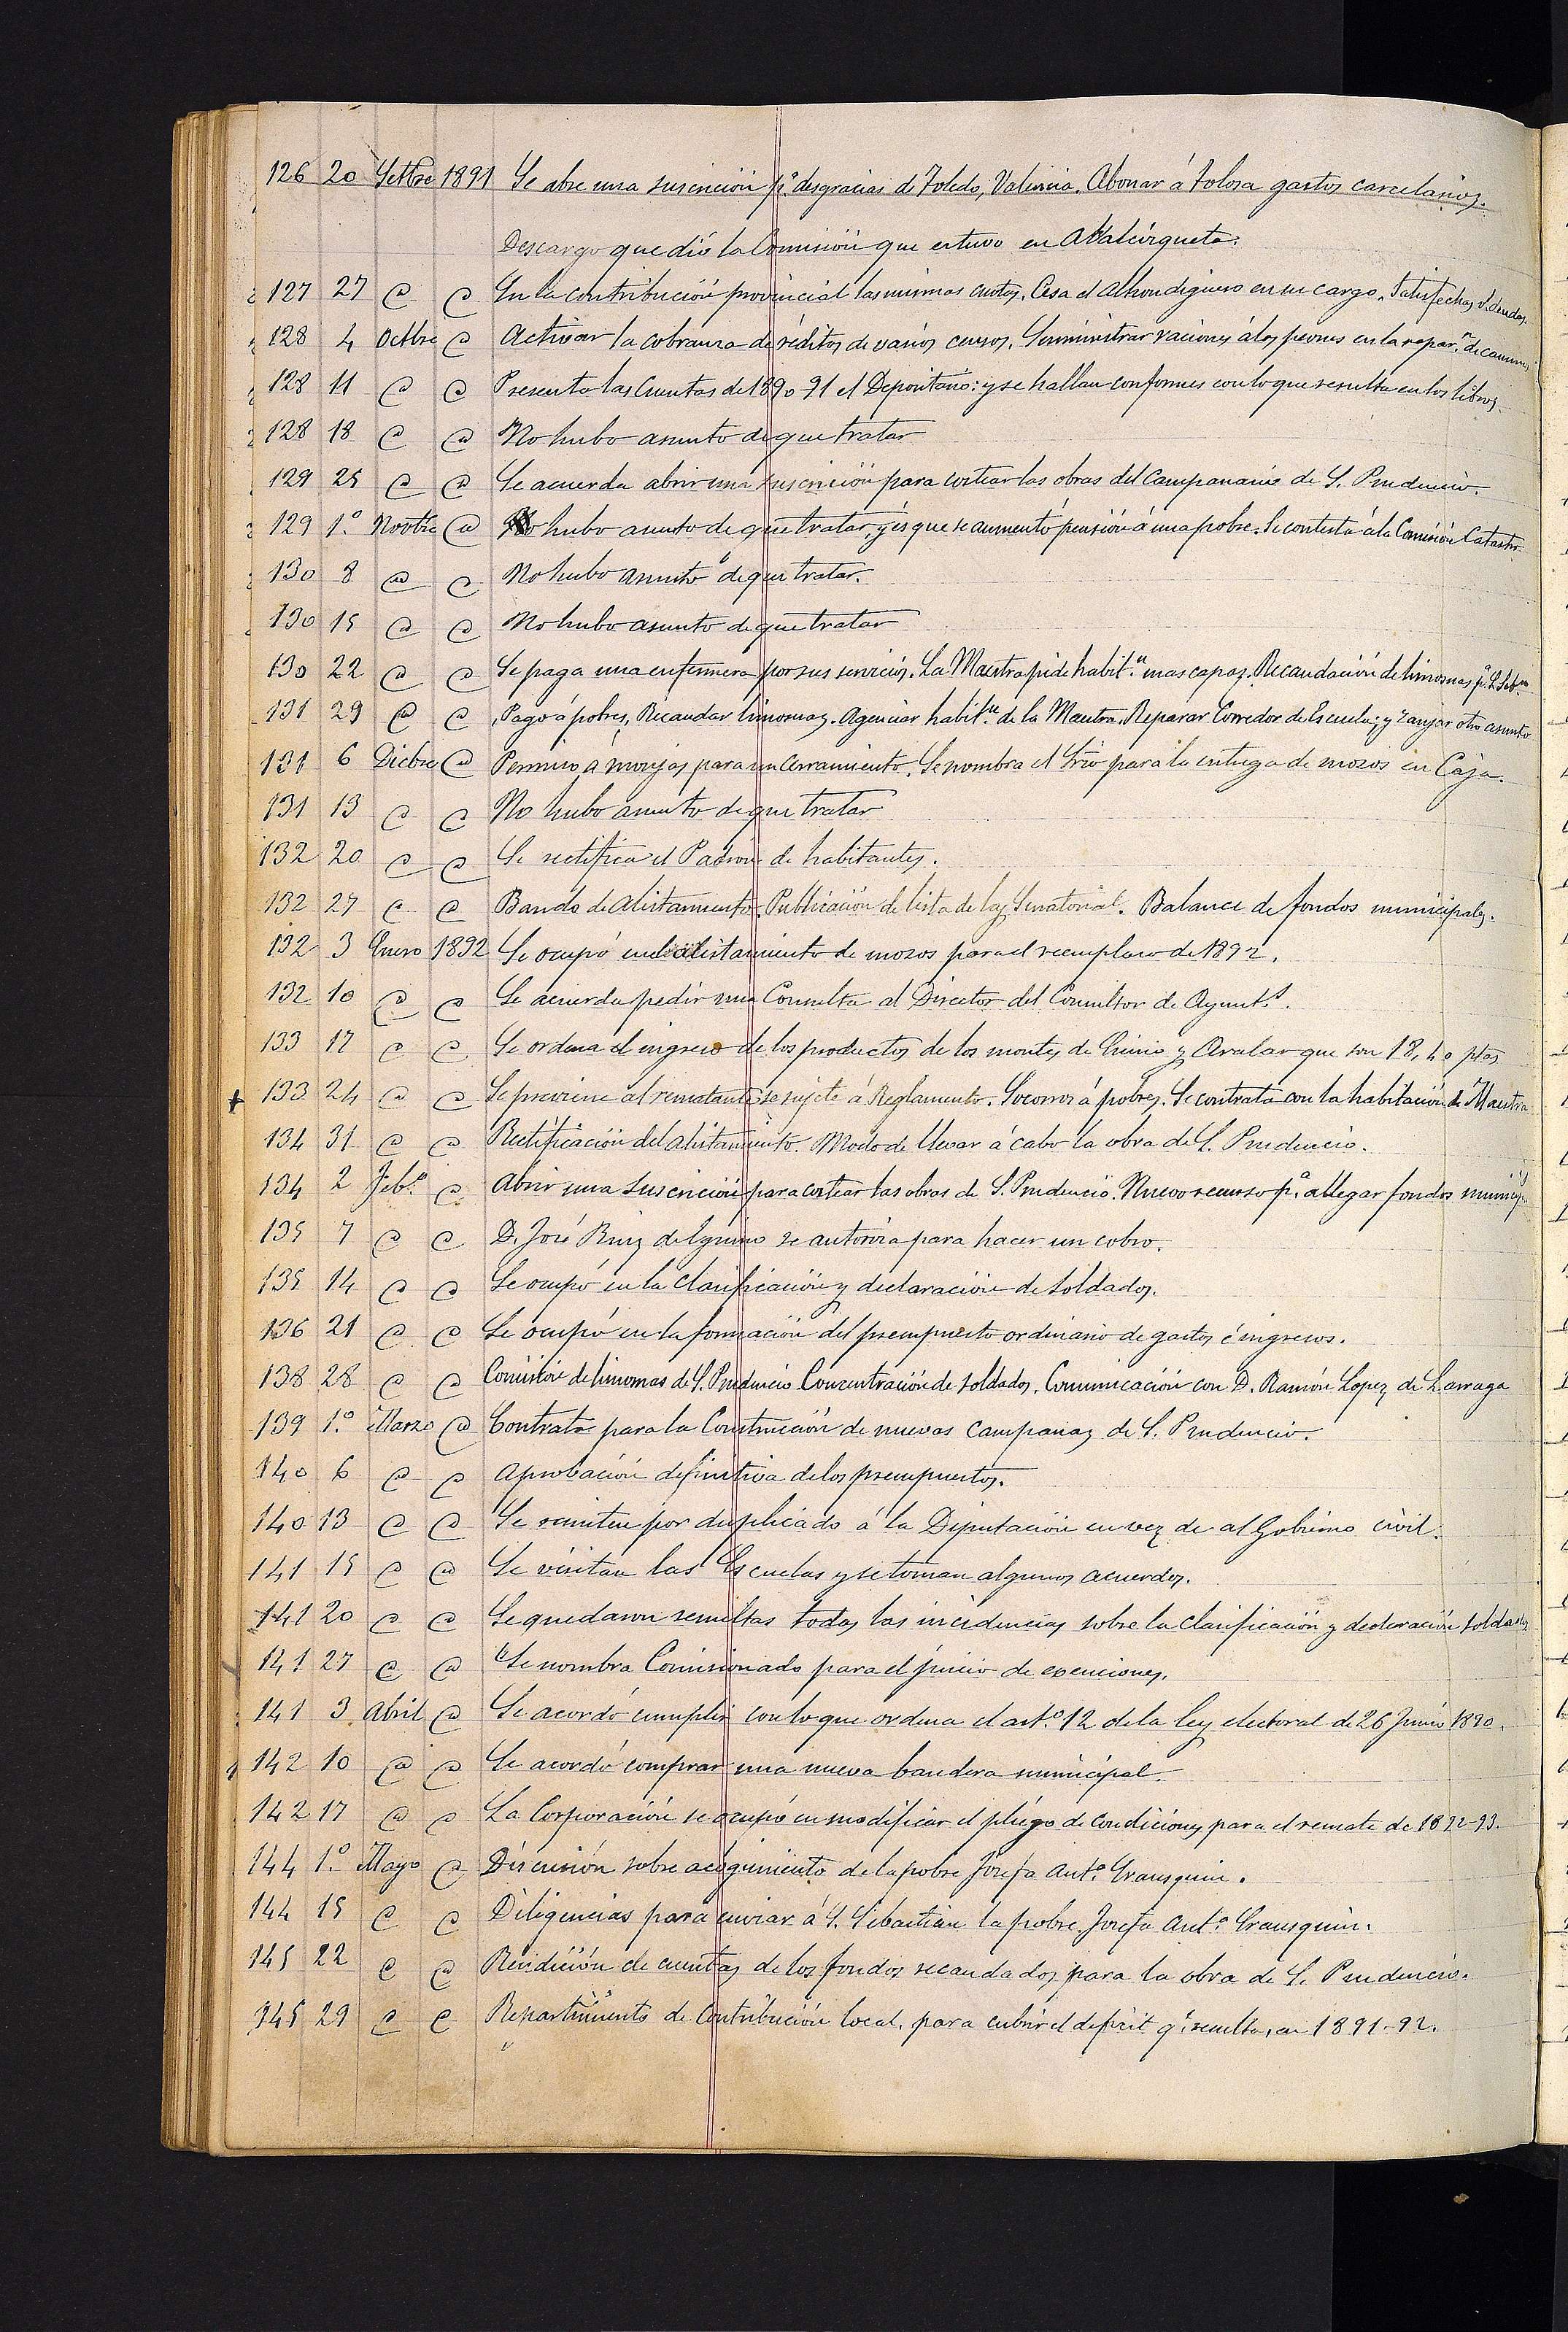 126 20 Setbre 1891 Se abre una suscrición p.ª desgracias de Toledo, Valencia. Abonar á Tolosa gastos carcelarios.
Descargo que dió la Comisión que estuvo en
127 27 @ @ En la contribución provincial las mismas cuotas. Cesa el alhondiguero en su cargo. Satisfechas
128 4 Octbre @ Activar la cobranza de réditos de varios censos. Suministrar raciones á los peones en la repar.n de caminos
128 11 @ @ Presenta las Cuentas de 1890-91 el Depositario: y se hallan conformes con lo que resulta en los libros.
128 18 @ @ No hubo asunto de que tratar
129 25 @ @ Se acuerda abrir una suscrición para costear las obras del Campanario de S. Prudencio.
129 1.º Novbre @ No hubo asunto de que tratar, y es que se aumentó pensión á una pobre. Se contesta á la Comisión Catastro
130 8 @ @ No hubo asunto de que tratar.
130 15 @ @ No hubo asunto de que tratar
130 22 @ @ Se paga una enfermera por sus servicios. La Maestra pide habit.n mas capaz. Recaudación de limosnas p.ª
131 29 @ @ Pago á pobres, Recaudar limosnas. Agenciar habit.n de la Maestra. Reparar Corredor de Escuela; y zanjar otro asunto
131 6 Dicbre @ Permiso á monjas para un cerramiento. Se nombra el Srio para la entrega de mozos en Caja.
131 13 @ @ No hubo asunto de que tratar
132 20 @ @ Se rectifica el Padrón de habitantes.
132 27 @ @ Bando de alistamiento. Publicación de lista de ley Senatorial. Balance de fondos municipales.
132 3 Enero 1892 Se ocupó en el alistamiento de mozos para el reemplazo de 1892.
132 10 @ @ Se acuerda pedir una Consulta al Director del Consultor de Ayunt.s.
133 17 @ @ Se ordena el ingreso de los productos de los montes de Enirio y Aralar que son 18,40 ptas
133 24 @ @ Se previene al rematante se sujete á Reglamento. Socorros á pobres. Se contrata con la habitación de Maestra
134 31 @ @ Rectificación del alistamiento. Modo de llevar á cabo la obra de S. Prudencio.
134 2 Feb.º @ Abrir una suscrición para costear las obras de S. Prudencio. Nuevo recurso p.ª allegar fondos municip.s
135 7 @ @ D. José Ruiz de se autoriza para hacer un cobro.
135 14 @ @ Se ocupó en la clasificación y declaración de soldados.
136 21 @ @ Se ocupó en la formación del presupuesto ordinario de gastos é ingresos.
138 28 @ @ Comisión de limosnas de S. Prudencio Concentración de soldados. Comunicación con D. Ramón Lopez de Larraga
139 1.º Marzo @ Contrato para la Construcción de nuevas campanas de S. Prudencio.
140 6 @ @ Aprobación definitiva de los presupuestos.
140 13 @ @ Se remiten por duplicado á la Diputación en vez de al Gobierno civil.
141 15 @ @ Se visitan las Escuelas y se toman algunos acuerdos.
141 20 @ @ Se quedaron resueltas todas las incidencias sobre la clasificación y declaración soldados
141 27 @ @ Se nombra Comisionado para el juicio de exenciones.
141 3 Abril @ Se acordó cumplir con lo que ordena el art.º 12 de la ley electoral de 26 Junio 1890.
142 10 @ @ Se acordó comprar una nueva bandera municipal.
142 17 @ @ La Corporación se ocupó en modificar el pliego de condiciones para el remate de 1892-93.
144 1.º Mayo @ Discusión sobre acogimiento de la pobre Josefa Ant.ª
144 15 @ @ Diligencias para enviar á S. Sebastian la pobre Josefa Ant.ª
145 22 @ @ Rendición de cuentas de los fondos recaudados para la obra de S. Prudencio.
145 29 @ @ Repartimiento de Contribución local, para cubrir el deficit q.e resulta, en 1891-92.